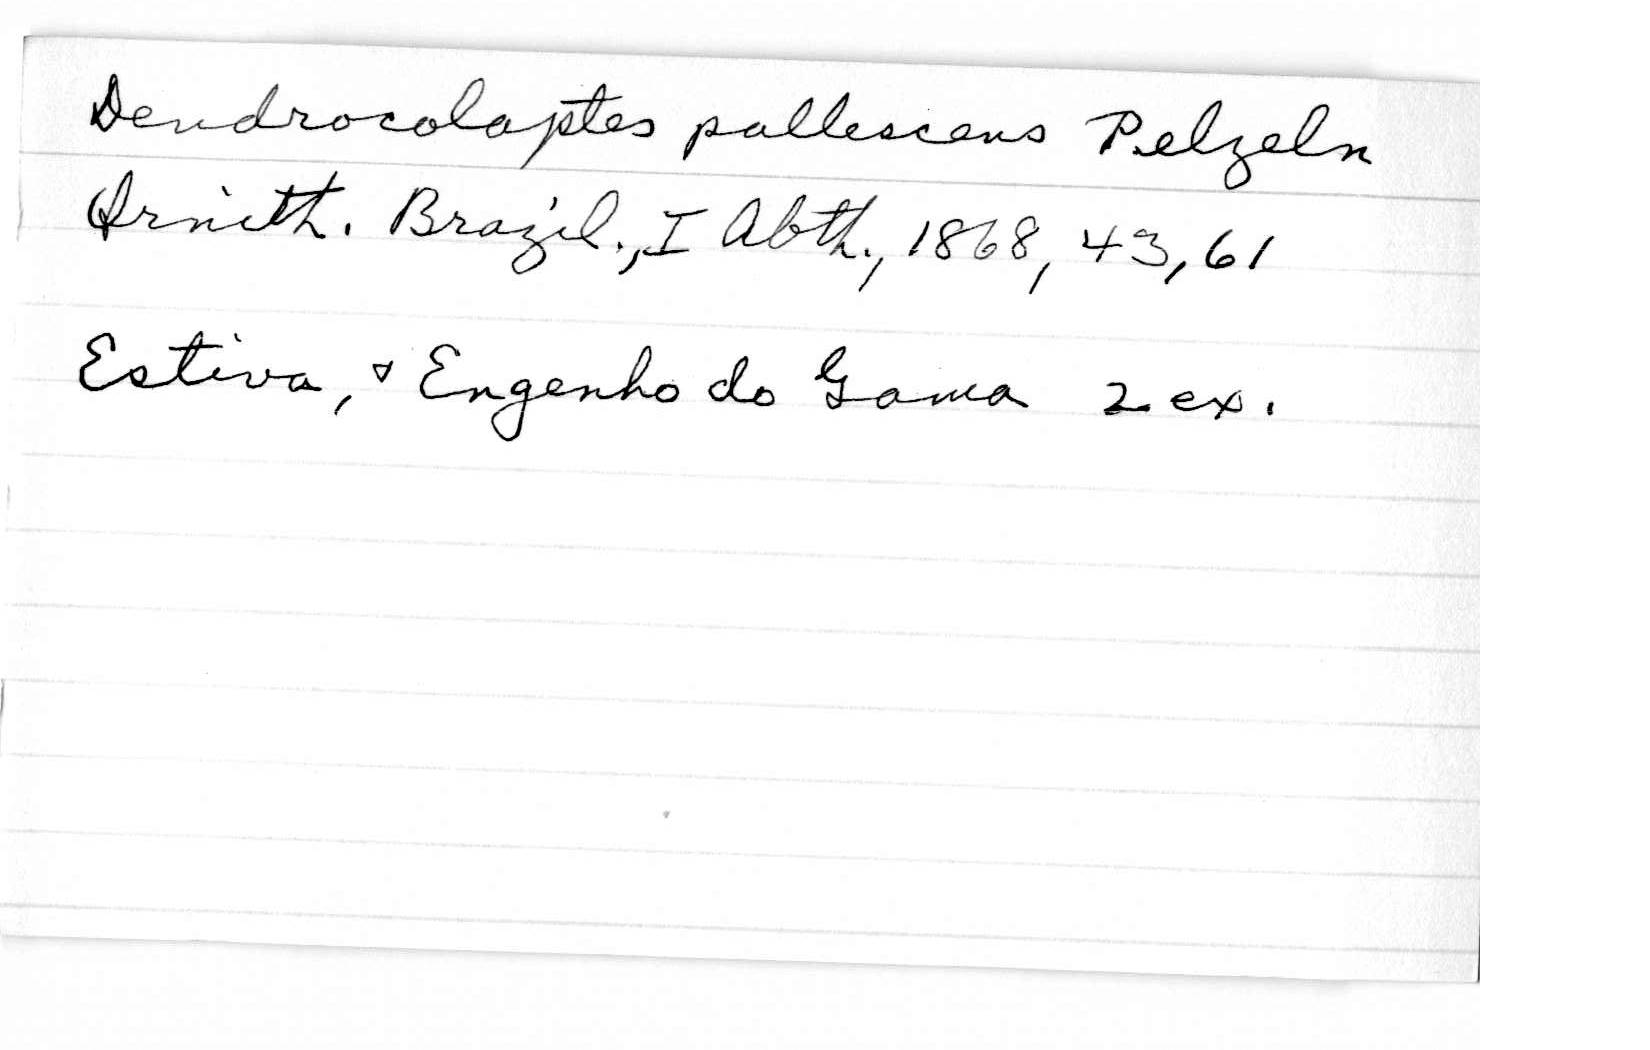 Dendrocolaptes pallescens Pelzeln
Ornith. Brazil., I Abth., 1868, 43, 61
Estiva, & Engenho do Gama 2 ex.